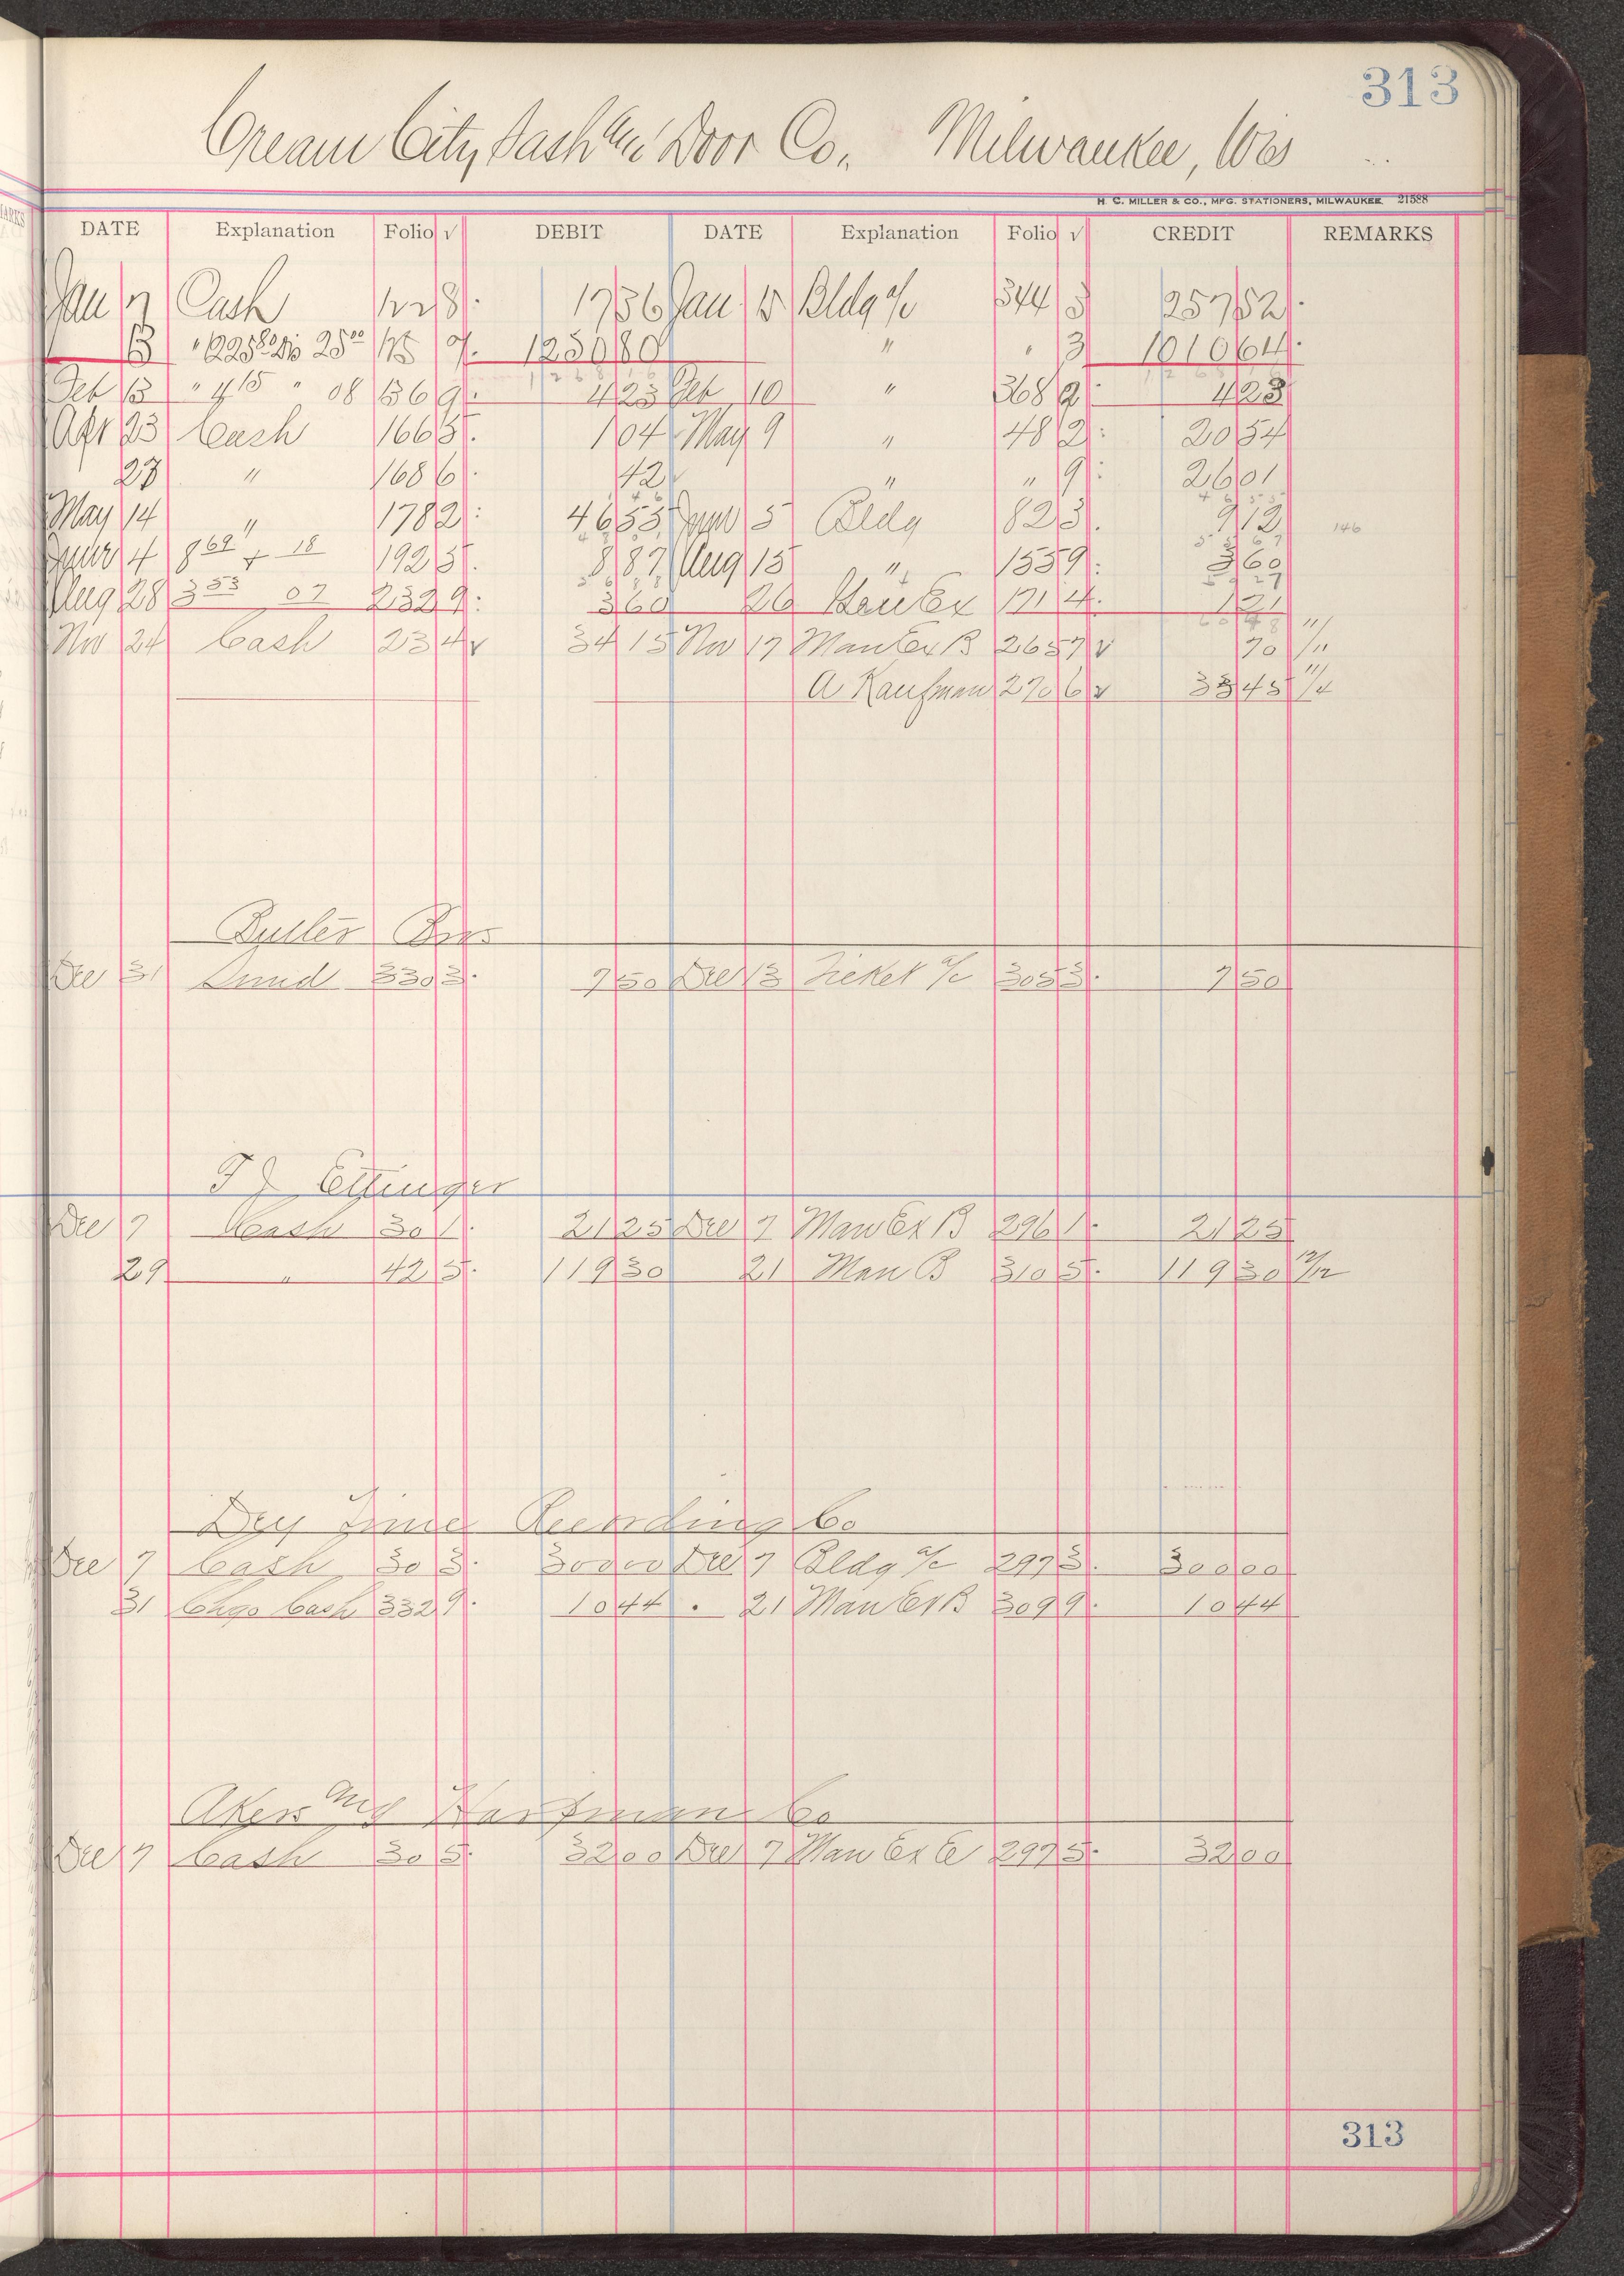 313
Cream City Sash & Door Co. Milwaukee, Wis
H. C. MILLER & CO., MFG. STATIONERS, MILWAUKEE 21588
DATE Explanation Folio √ DEBIT DATE Explanation Folio √ CREDIT REMARKS
Jan Cash 1736 Jan 15 Bldg a/c 344 3 257 52
" 1250 80 " " 3 1010 64
Feb 13 " 4 15 " 08 136 9 4 23 Feb 10 " 368 9 4 23
Apr 23 Cash 166 5 1 04 May 9 " 48 2 20 54
27 " 168 6 42 " " 9 26 01
May 14 " 178 2 46 55 June 5 Bldg 82 3 9 12 146
June 4 8 69 + 18 192 5 8 87 Aug 15 " 155 9 3 60
Aug 28 3 53 07 232 9 3 60 26 171 4 1 21
Nov 24 Cash 23 4 √ 34 15 Nov 17 Man Ex B 265 7 √ 70 11/11
A Kaufman 270 6 √ 33 45 11/4
Butler Bros
Dec 31 Sund 330 3 7 50 Dec 13 Ticket a/c 305 3 7 50
T J Ettinger
Dec 7 Cash 30 1 21 25 Dec 7 Man Ex B 296 1 21 25
29 " 42 5 119 30 21 Man B 310 5 119 30 12/12
Dey Time Recording Co
Dec 7 Cash 30 3 300 00 Dec 7 Bldg a/c 297 3 300 00
31 Chgo Cash 332 9 10 44 . 21 Man Ex B 309 9 10 44
Akers Mfg Harpman Co
Dec 7 Cash 30 5 32 00 Dec 7 Man Ex C 297 5 32 00
313